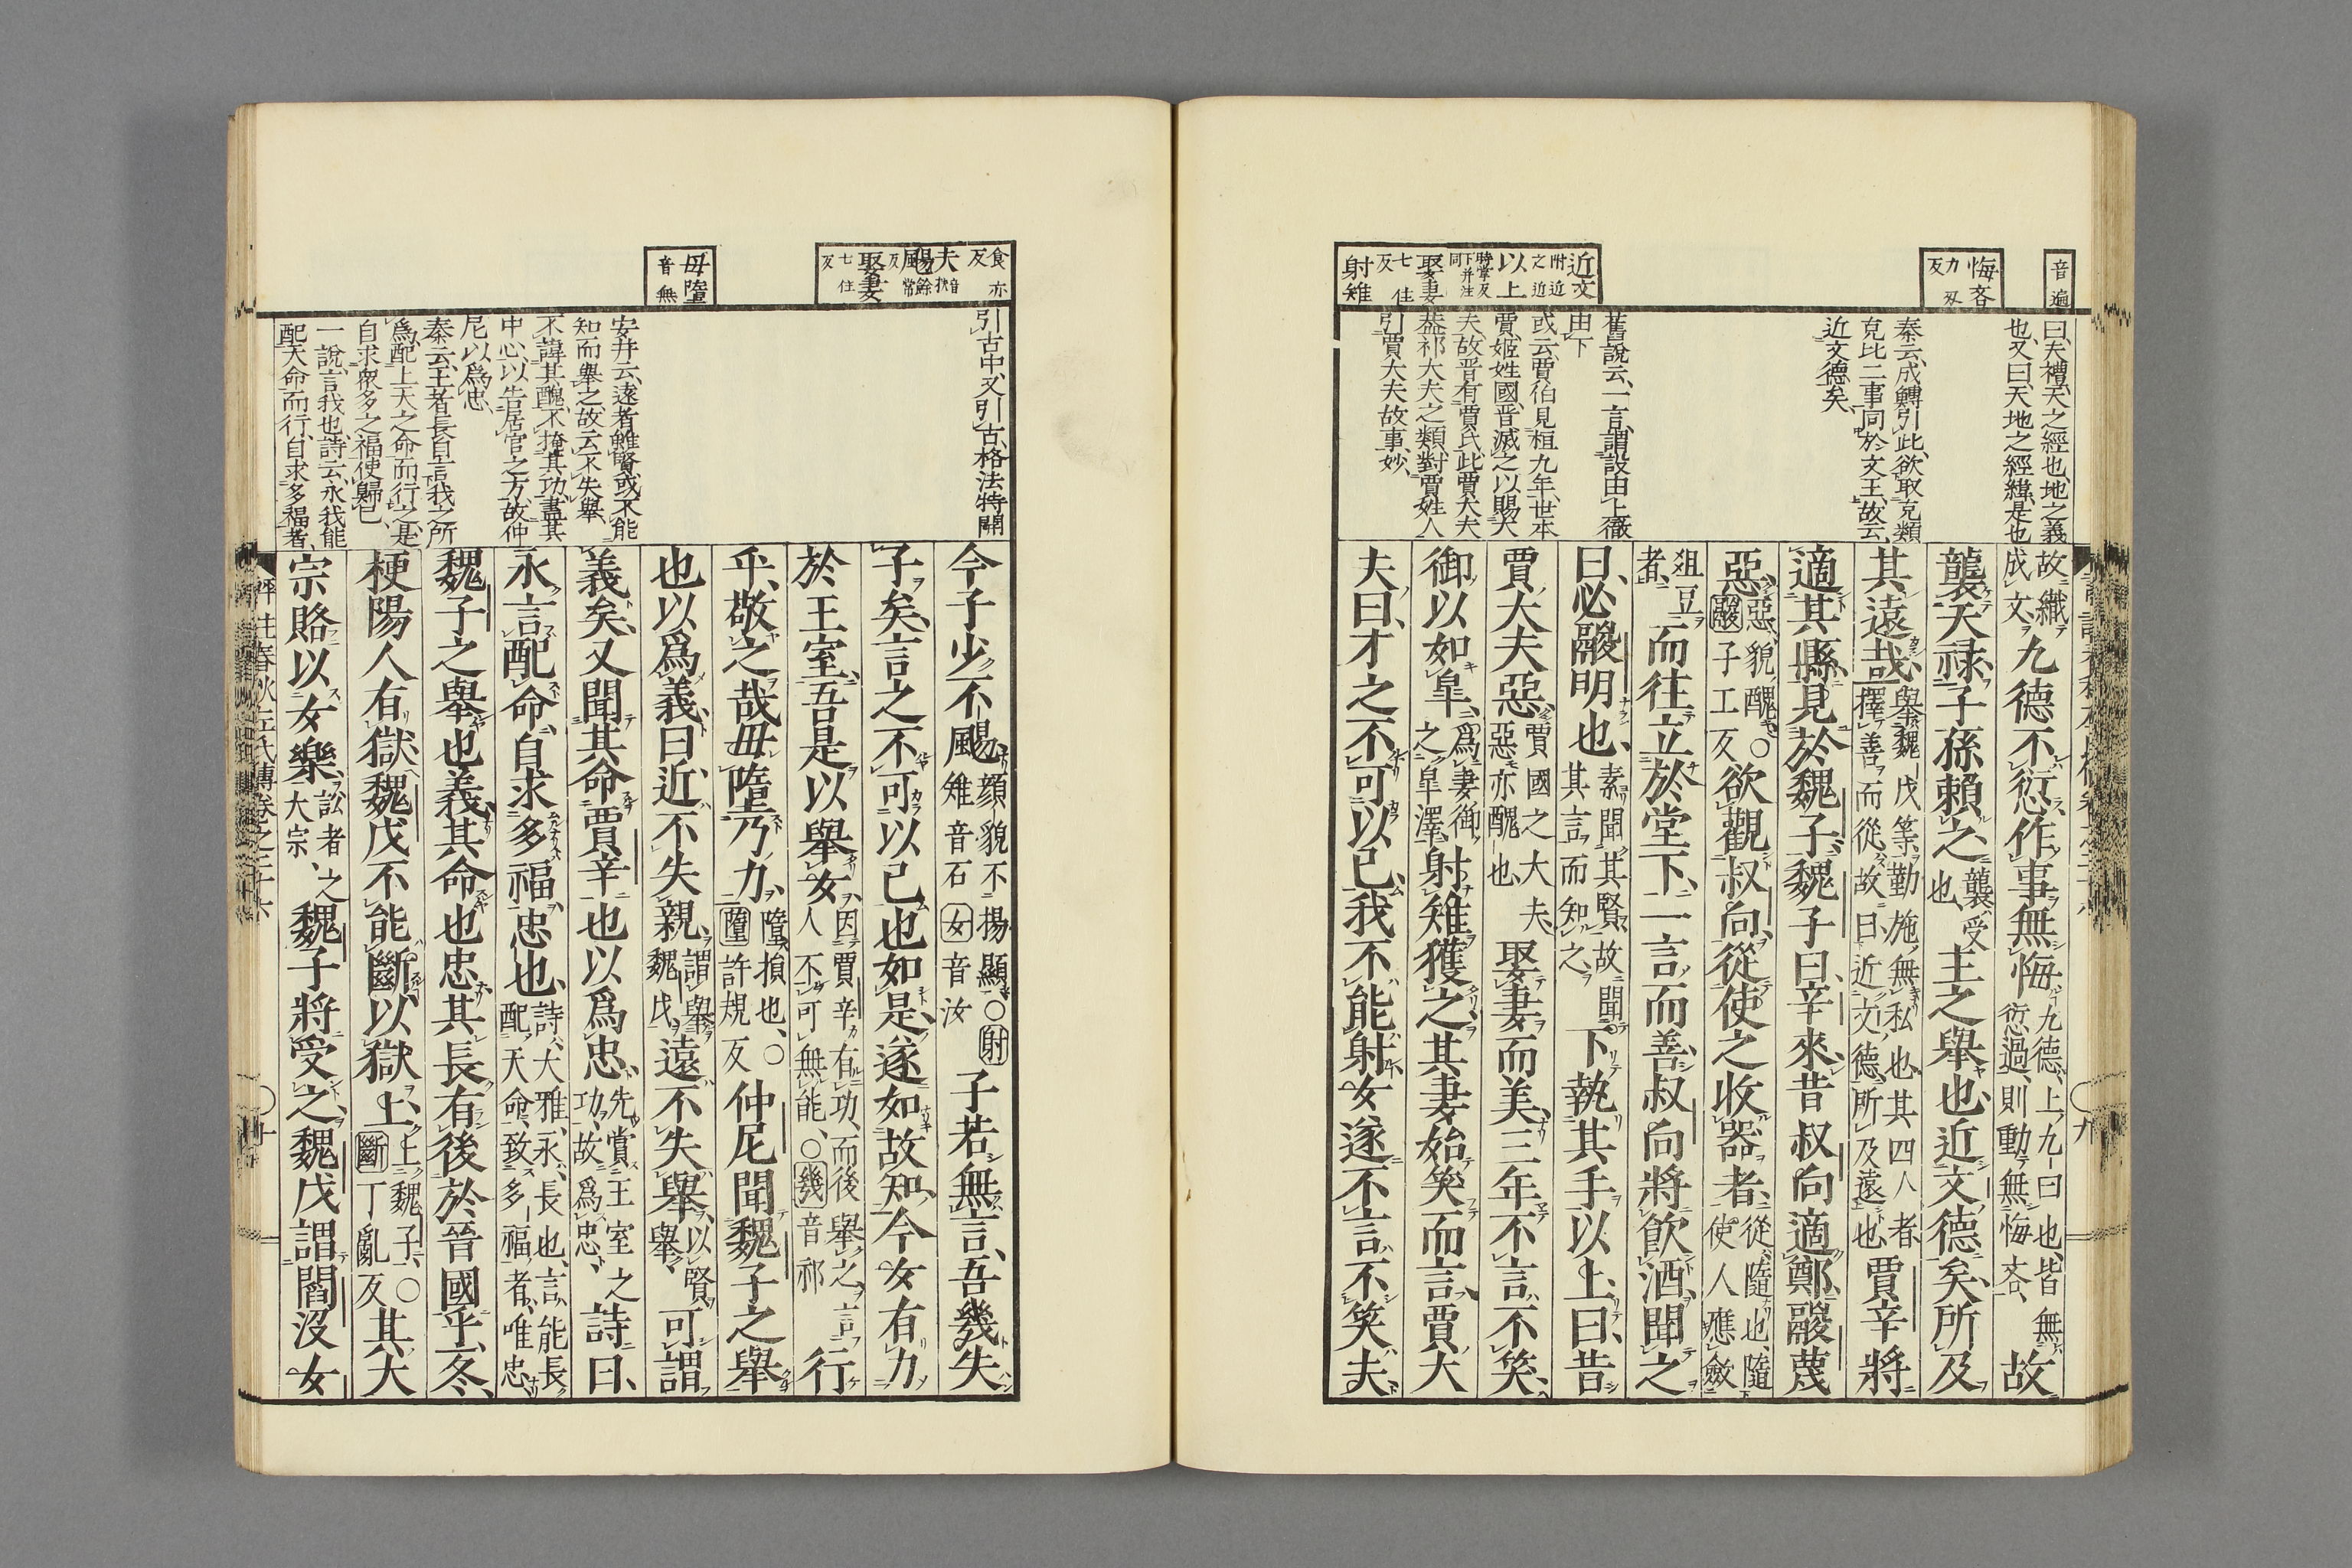 音遍
悔吝 力刃反
近文 附近之近
以上 時掌反下并注同
娶妻 七住反
射雉
曰、夫禮、天之經也、地之義
也、又曰、天地之經緯、是也
秦云、成鱄引此、欲取克類
克比二事、同於文王、故云、
近文德矣、
舊說云、一言、謂設由上徹
由下
或云、賈伯見桓九年、世本
賈、姬姓國、晉滅之、以賜大
夫、故晉有賈氏、此賈大夫
蓋祁大夫之類、對賈姓人
引賈大夫故事、妙、
故織成文、九德不愆、作事無悔、九德、上九曰也、皆無愆過、則動無悔吝、故
襲天祿、子孫賴之、襲、受也、主之舉也、近文德矣、所及
其遠哉、舉魏戊等、勤施無私也、其四人者、擇善而從、故曰近文德、所及遠也、賈辛將
適其縣、見於魏子、魏子曰、辛來、昔叔向適鄭、鬷蔑
惡、惡、貌醜、○鬷子工反欲觀叔向、從使之收器者、從、隨也、隨使人應斂
俎豆者、而往、立於堂下、一言而善、叔向將飲酒、聞之
曰、必鬷明也、素聞其賢、故聞其言而知之、下、執其手以上、曰、昔
賈大夫惡、賈國之大夫、惡亦醜也、娶妻而美、三年不言不笑、
御以如皐、爲妻御、之皐澤、射雉獲之、其妻始笑而言、賈大
夫曰、才之不可以已、我不能射、女遂不言不笑、夫
食亦反
夫音扶
颺餘常反
娶妻 七住反
毋墮 音無
引古中又引古、格法特開
安井云、遠者雖賢、或不能
知而舉之、故云不失舉、
不諱其醜、不掩其功、盡其
中心、以告居官之方、故仲
尼以爲忠、
秦云、王者長自言我之所
爲、配上天之命而行之、是
自求衆多之福、使歸己、
一說、言我也、詩云、永我能
配天命而行、自求多福者、
今子少不颺、顏貌不揚顯、○射雉音石女音汝子若無言、吾幾失
子矣、言之不可以已也如是、遂如故知、今女有力
於王室、吾是以舉女、因賈辛有功、而後舉之、言人不可無能、○幾音祁行
乎、敬之哉、毋墮乃力、墮、損也、○墮許規反仲尼聞魏子之舉
也、以爲義、曰、近不失親、謂舉魏戊、遠不失舉、以賢舉、可謂
義矣、又聞其命賈辛也、以爲忠、先賞王室之功、故爲忠、詩曰、
永言配命、自求多福、忠也、詩、大雅、永、長也、言能長配天命、致多福者、唯忠、
魏子之舉也義、其命也忠、其長有後於晉國乎、冬、
梗陽人有獄、魏戊不能斷、以獄上、上魏子、○斷丁亂反其大
宗賂以女樂、訟者之大宗、魏子將受之、魏戊謂閻沒女